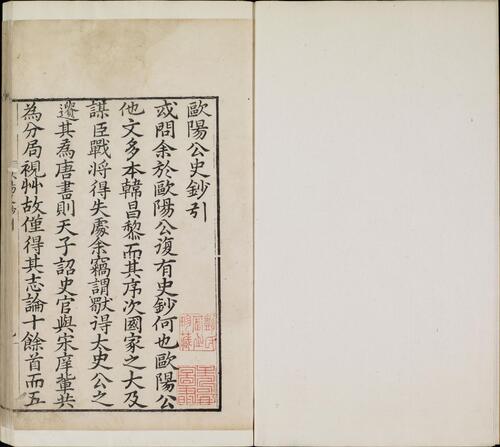 歐陽公史鈔引
或問余於歐陽公復有史鈔何也歐陽公
他文多本韓昌黎而其序次國家之大及
謀臣戰將得失處余竊謂獨得太史公之
遷其為唐書則天子詔史官與宋庠輩共
為分局視艸故僅得其志論十餘首而五